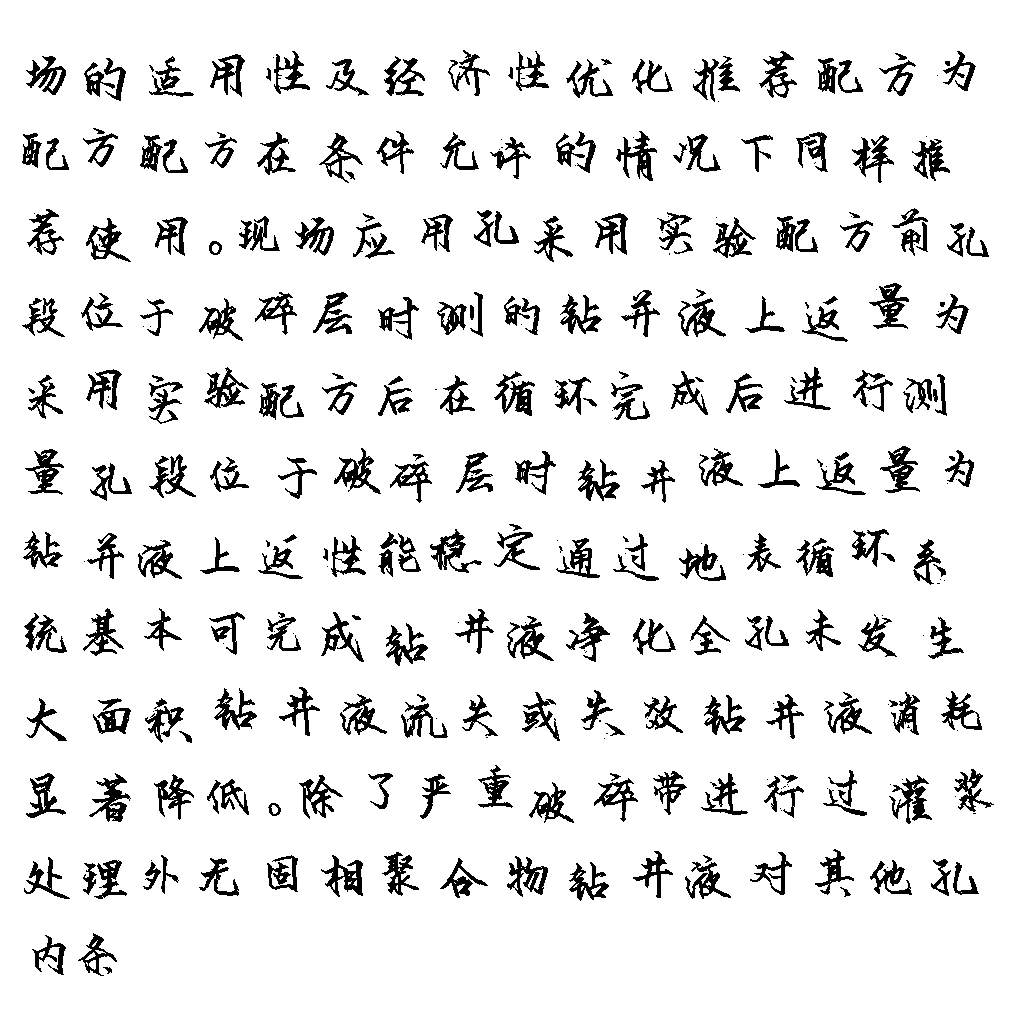 场的适用性及经济性优化推荐配方为
配方配方在条件允许的情况下同样推
荐使用。现场应用孔采用实验配方前孔
段位于破碎层时测的钻井液上返量为
采用实验配方后在循环完成后进行测
量孔段位于破碎层时钻井液上返量为
钻井液上返性能稳定通过地表循环系
统基本可完成钻井液净化全孔未发生
大面积钻井液流失或失效钻井液消耗
显著降低。除了严重破碎带进行过灌浆
处理外无固相聚合物钻井液对其他孔
内条